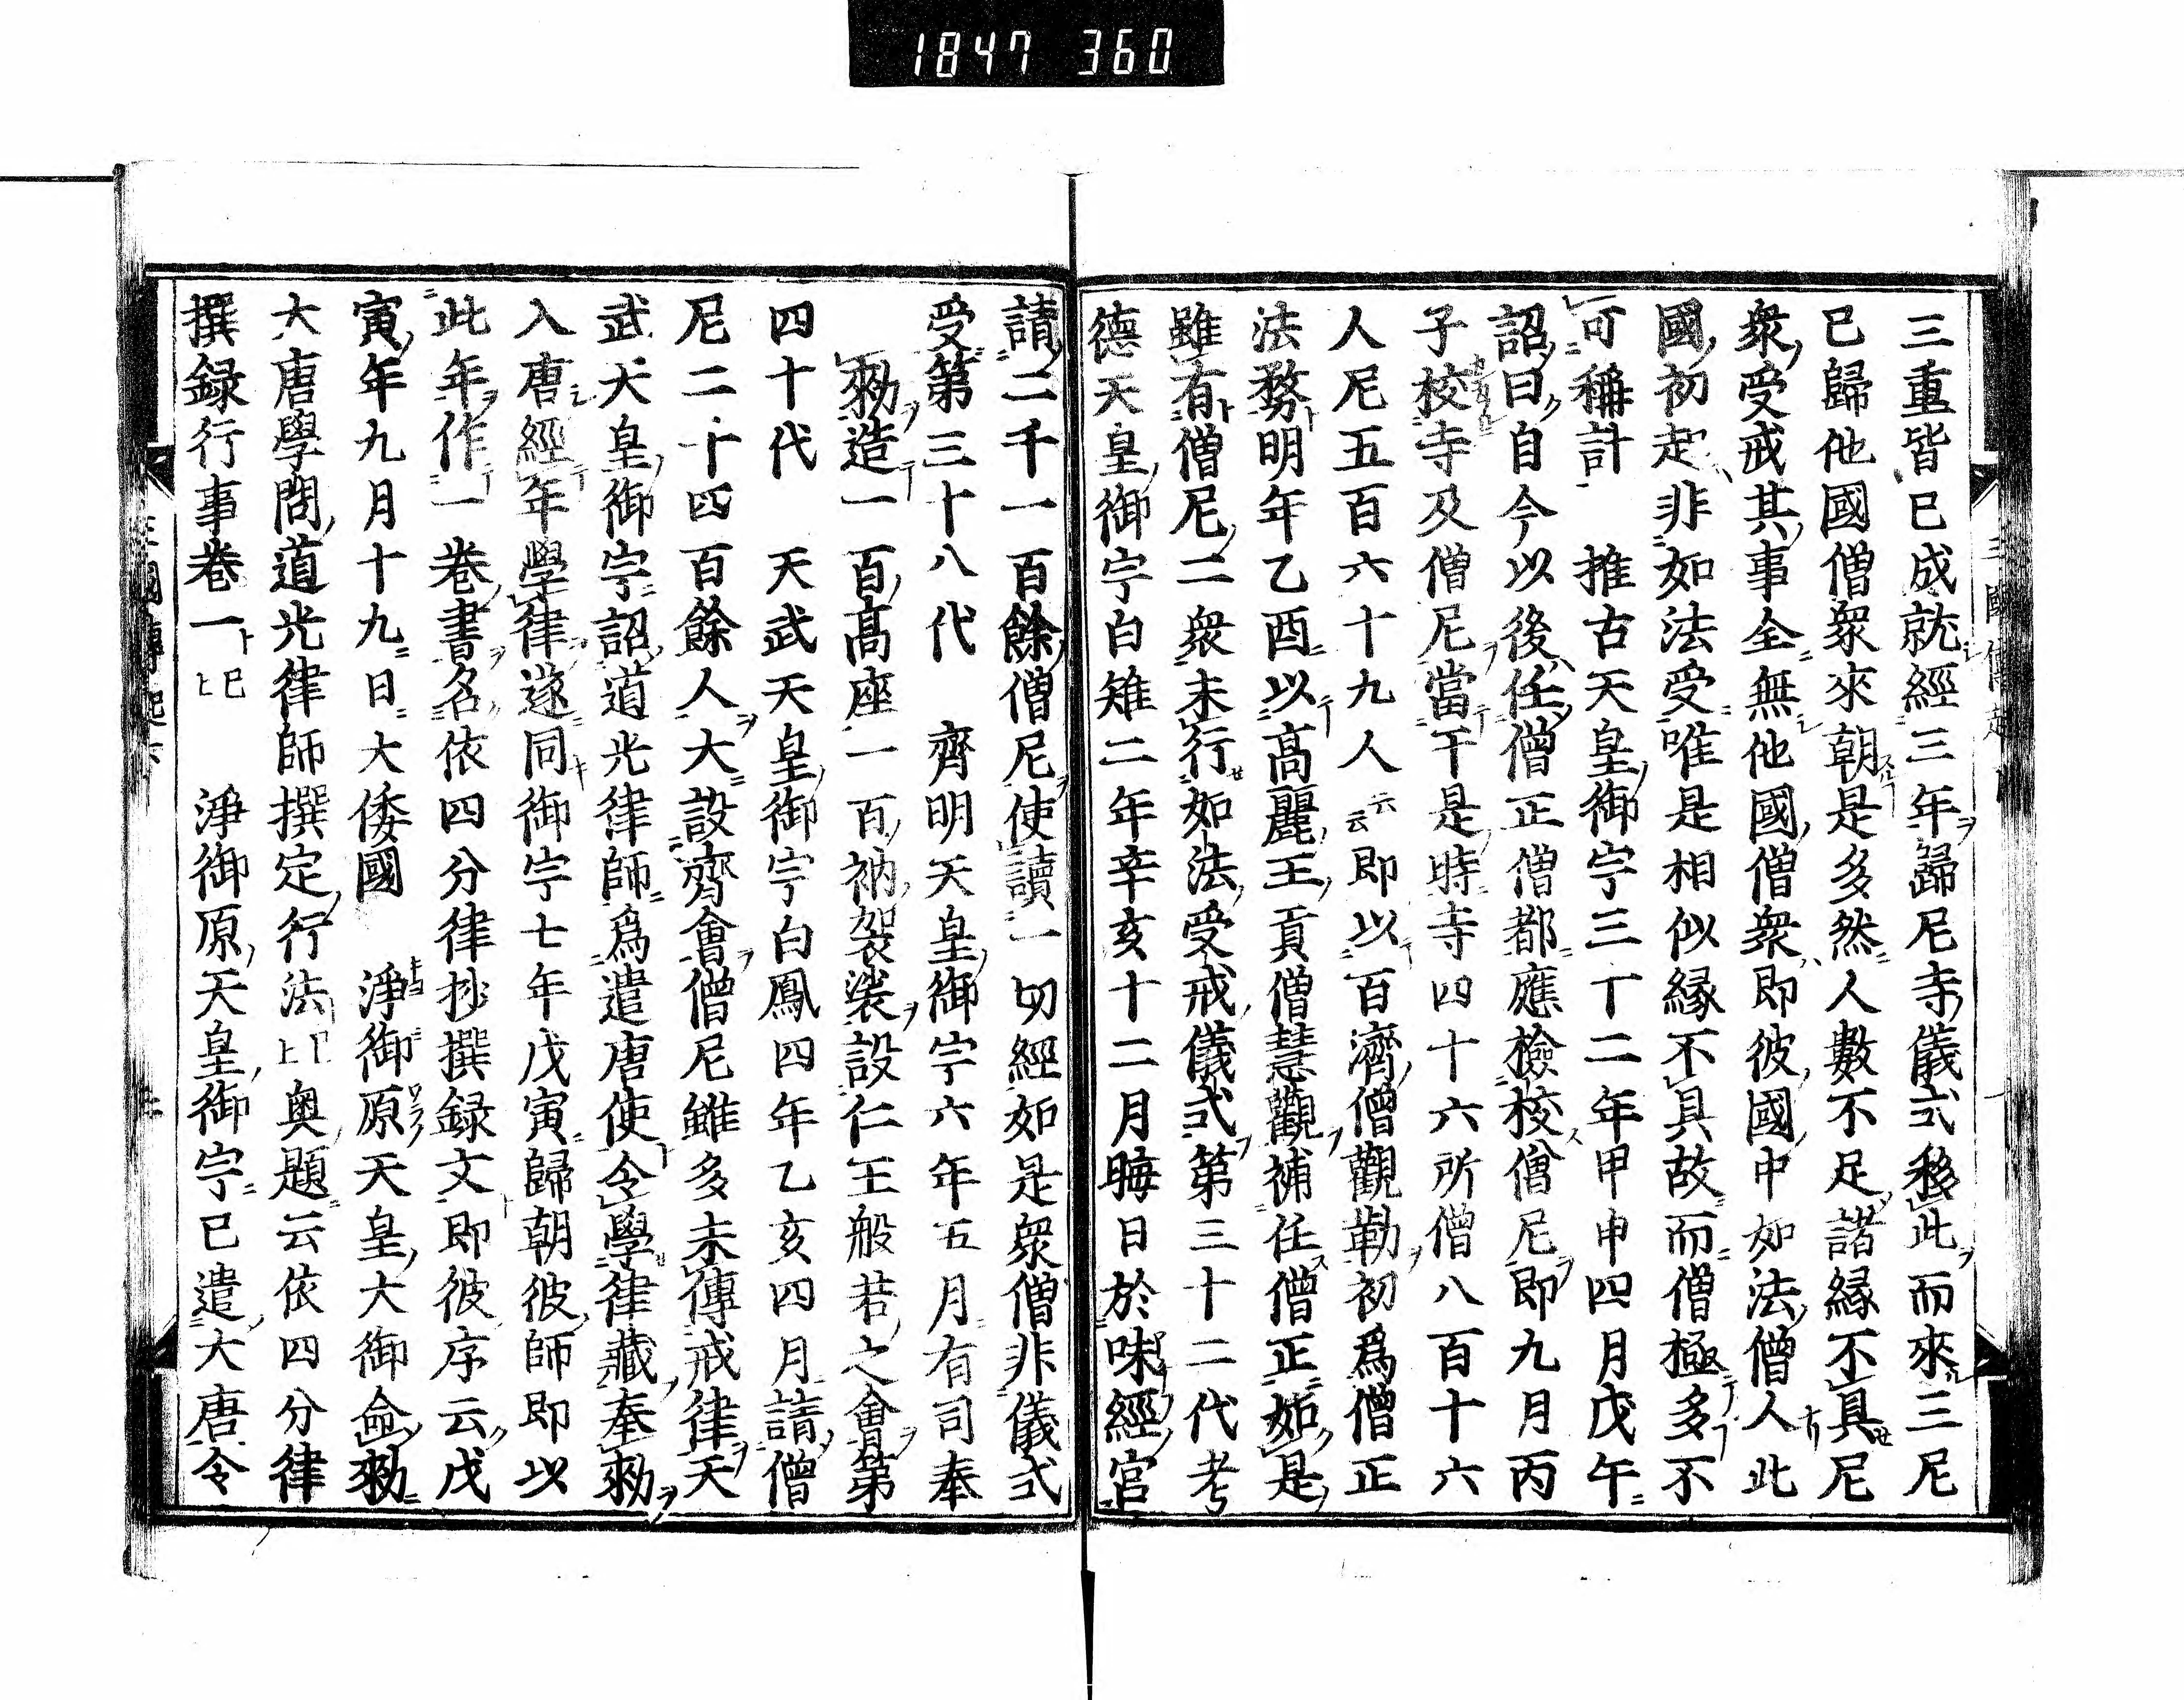 1847 360
三重皆已成就經三年歸尼寺儀式移此而來三尼
已歸他國僧衆來朝是多然人數不足諸縁不具尼
衆受戒其事全無他國僧衆即彼國中如法僧人此
國初起非如法受唯是相似縁不具故而僧極多不
可稱計　推古天皇御宇三十二年甲申四月戊午
詔曰自今以後任僧正僧都應檢校僧尼即九月丙
子校寺及僧尼當于是時寺四十六所僧八百十六
人尼五百六十九人云云即以百濟僧觀勒初爲僧正
法務明年乙酉以高麗王貢僧慧觀補任僧正如是
雖有僧尼二衆未行如法受戒儀式第三十二代考
德天皇御宇白雉二年辛亥十二月晦日於味經宮
請二千一百餘僧尼使讀一切經如是衆僧非儀式
受第三十八代　齊明天皇御宇六年五月有司奉
勑造一百高座一百衲袈裟設仁王般若之會第
四十代　天武天皇御宇白鳳四年乙亥四月請僧
尼二十四百餘人大設齊會僧尼雖多未傳戒律天
武天皇御宇詔道光律師爲遣唐使令學律藏奉勑
入唐經年學律遂同御宇七年戊寅歸朝彼師即以
此年作一卷書名依四分律抄撰録文即彼序云戊
寅年九月十九日大倭國　淨御原天皇大御命勑
大唐學問道光律師撰定行法已上奥題云依四分律
撰録行事卷一已上　淨御原天皇御宇已遣大唐令